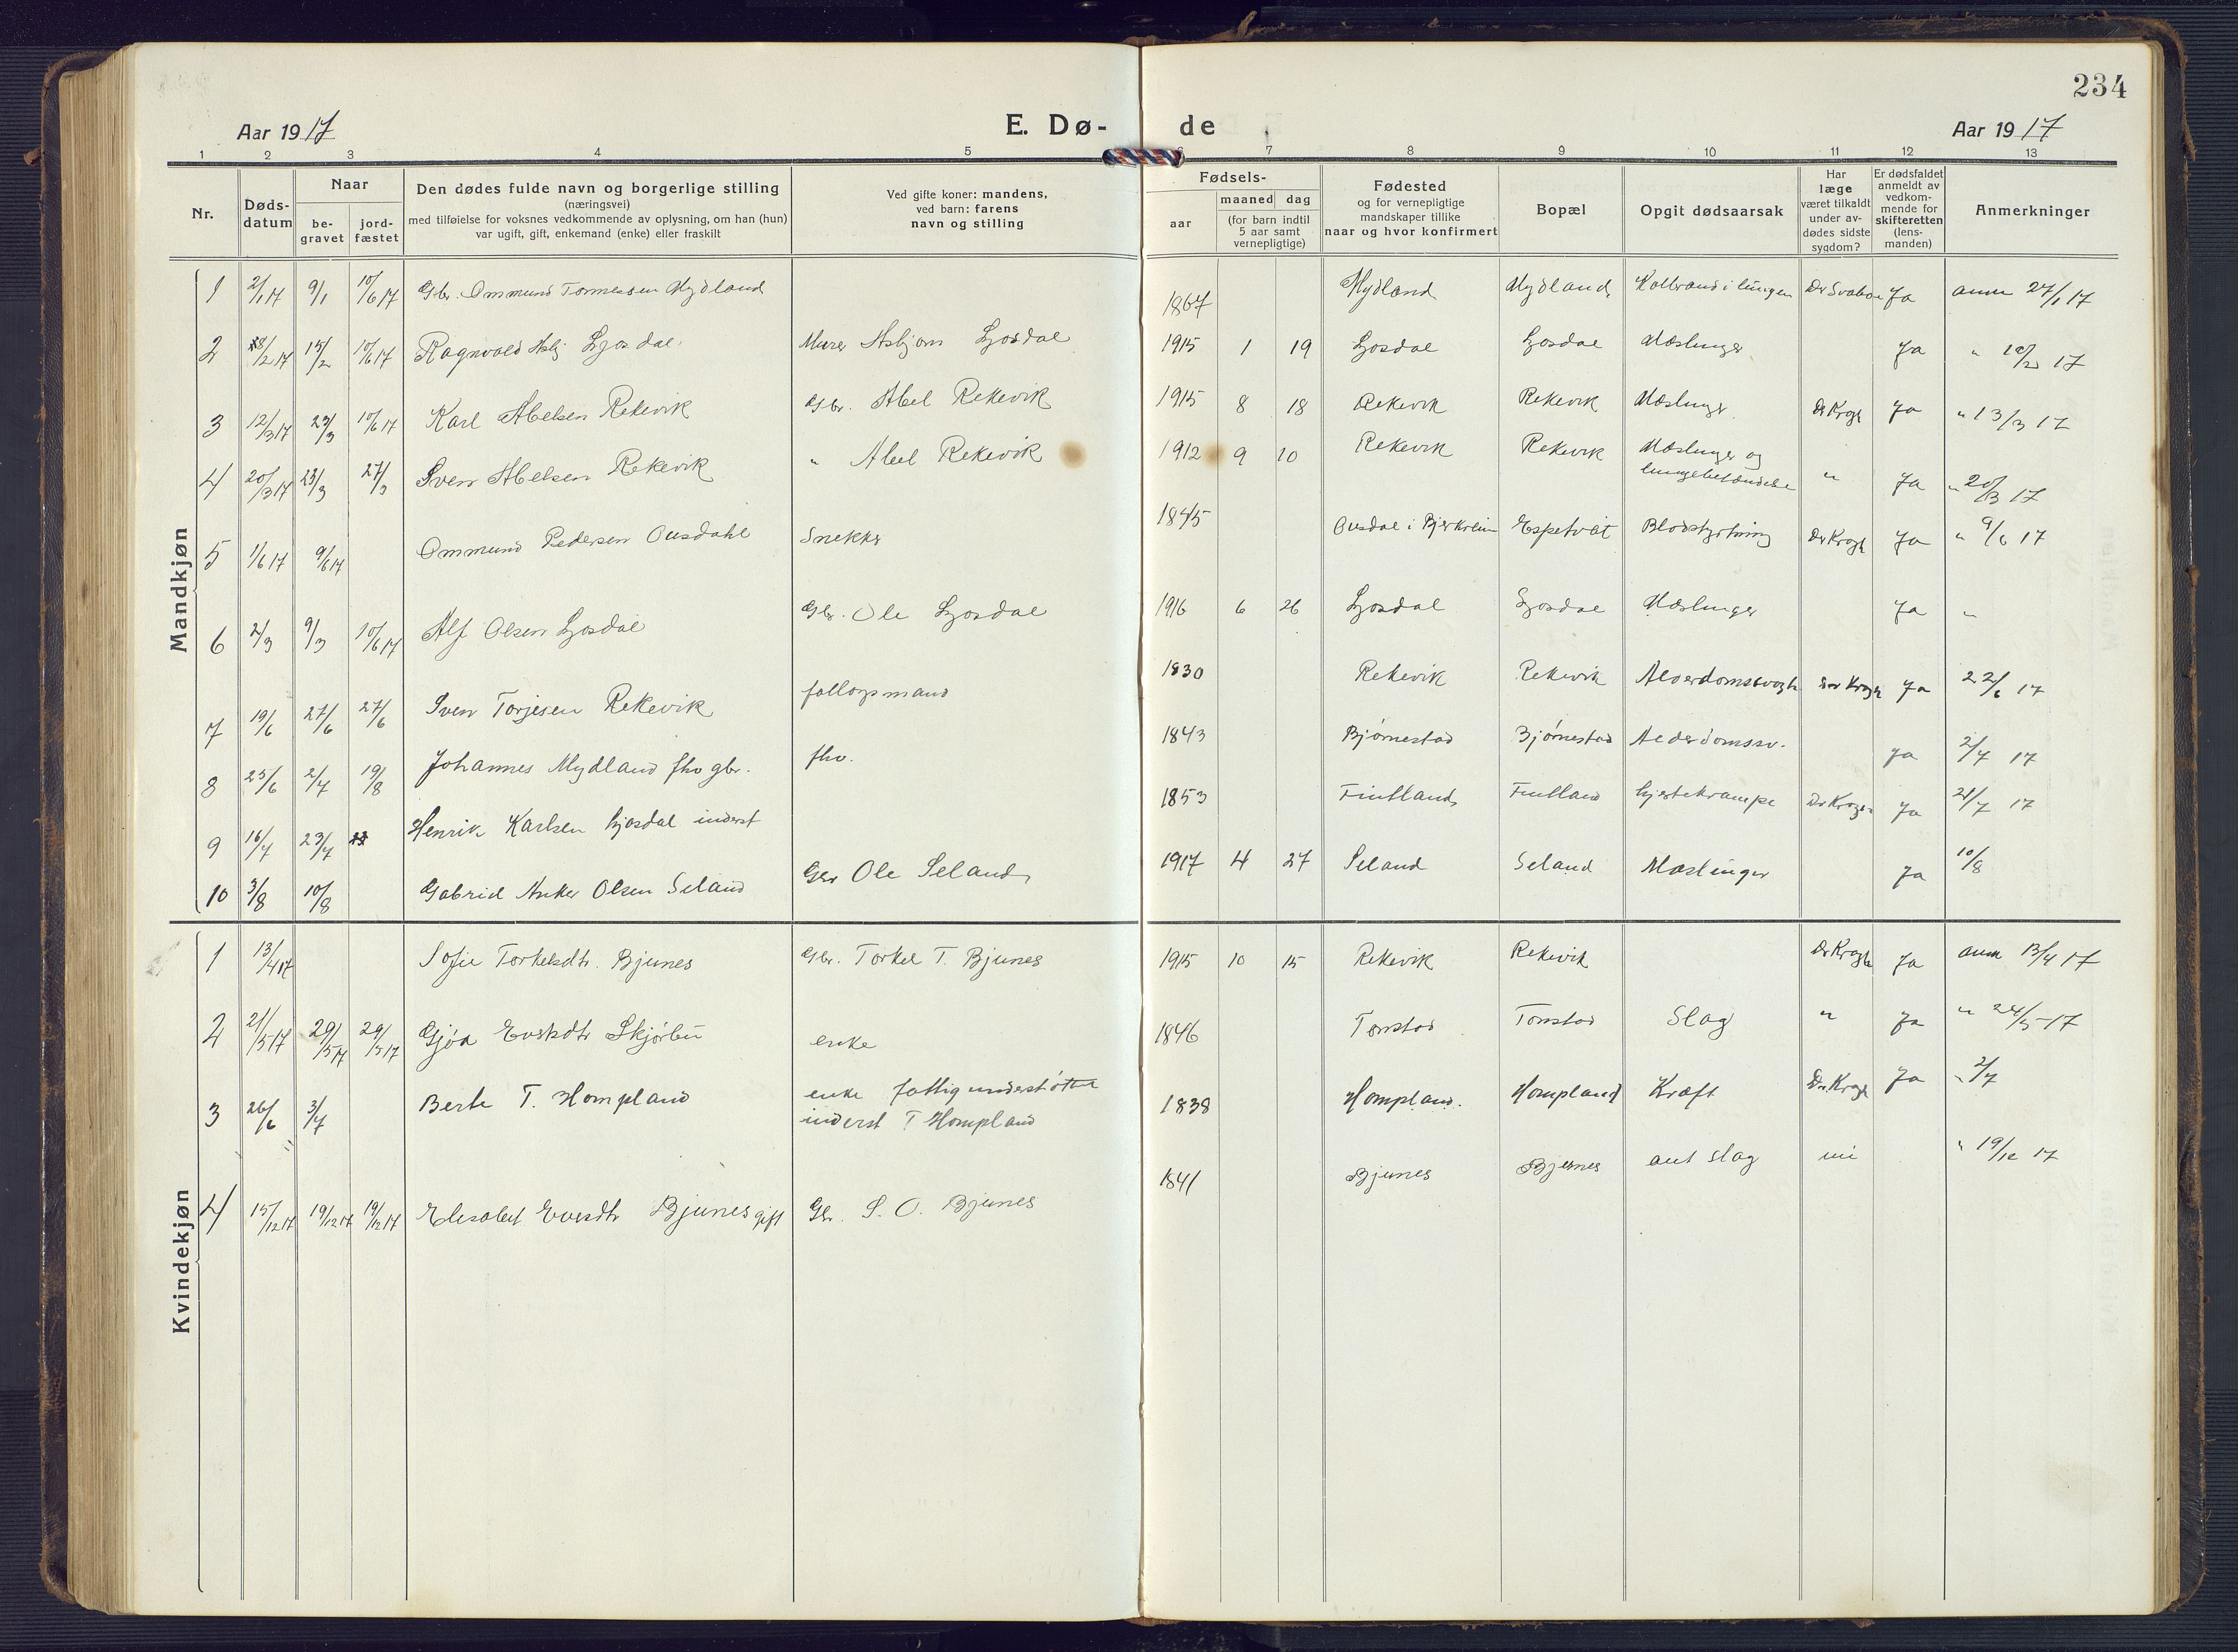 234
Aar 1917 E. Dø- de Aar 1917
1 2 3 4 5 6 7 8 9 10 11 12 13
Nr.
Døds-
datum
Naar
be-
gravet
jord-
fæstet
Den dødes fulde navn og borgerlige stilling
(næringsvei)
med tilføielse for voksnes vedkommende av oplysning, om han (hun)
var ugift, gift, enkemand (enke) eller fraskilt
Ved gifte koner: mandens,
ved barn: farens
navn og stilling
Fødsels-
aar
maaned dag
(for barn indtil
5 aar samt
vernepligtige)
Fødested
og for vernepligtige
mandskaper tillike
naar og hvor konfirmert
Bopæl
Opgit dødsaarsak
Har
læge
været tilkaldt
under av-
dødes sidste
sygdom?
Er dødsfaldet
anmeldt av
vedkom-
mende for
skifteretten
(lens-
manden)
Anmerkninger
Mandkjøn
1 2/1 17 9/1 10/6 17 Gbr. Ommund Tønnessen Mydland 1867 Mydland Mydland Kolbrand i lungen Dr Svaboe Ja anm 27/1 17
2 8/2 17 15/2 10/6 17 Ragnvald Asbj Ljosdal Murer Asbjørn Ljosdal 1915 1 19 Ljosdal Ljosdal Mæslinger Ja " 17
3 12/3 17 23/3 10/6 17 Karl Abelsen Rekevik Gbr. Abel Rekevik 1915 8 18 Rekevik Rekevik Mæslinger Dr Krogh Ja " 13/3 17
4 20/3 17 23/3 27/3 Sven Abelsen Rekevik " Abel Rekevik 1912 9 10 Rekevik Rekevik Mæslinger og
lungebetændelse " Ja " 20/3 17
5 1/6 17 9/6 17 Ommund Pedersen Ousdahl Snekker 1845 Ousdal i Bjerkreim Espetvät Blodstyrtning Dr Krogh Ja " 9/6 17
6 2/3 9/3 10/6 17 Alf Olsen Ljosdal Gbr. Ole Ljosdal 1916 6 26 Ljosdal Ljosdal Mæslinger Ja "
7 19/6 27/6 27/6 Sven Torjesen Rekevik follogsmand 1830 Rekevik Rekevik Krogh Ja 22/6 17
8 25/6 2/7 19/8 Johannes Mydland fhv gbr. fhv. 1843 Bjørnestad Bjørnestad Alderdomssv. Ja 2/7 17
9 16/7 23/7 Henrik Karlsen Ljosdal inderst 1853 Fintland Fintland hjertekrampe Dr Krogh Ja 21/7 17
10 3/8 10/8 Gabriel Anker Olsen Seland Gbr Ole Seland 1917 4 27 Seland Seland Mæslinger Ja 10/8
Kvindekjøn
1 13/4 17 Sofie Torkelsdtr. Bjunes Gbr. Torkel T. Bjunes 1915 10 15 Rekevik Rekevik Dr Krogh Ja anm 13/4 17
2 21/5 17 29/5 17 29/5 17 Gjøa Skjørbu enke 1846 Tonstad Tonstad Slag " Ja " 24/5 17
3 26/6 3/7 Berte T. Hompland enke fattigunderstøttet
inderst T Hompland 1838 Hompland. Hompland Kræft Dr Krogh Ja " 2/7
4 15/12 17 19/12 17 19/12 17 Elisabet Bjunes gift Gbr. S. O. Bjunes 1841 Bjunes Bjunes ant slag nei " 19/12 17